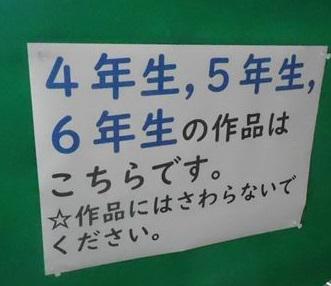 4年生,5年生,
6年生の作品は
こちらです。
☆作品にはさわらないで
ください。